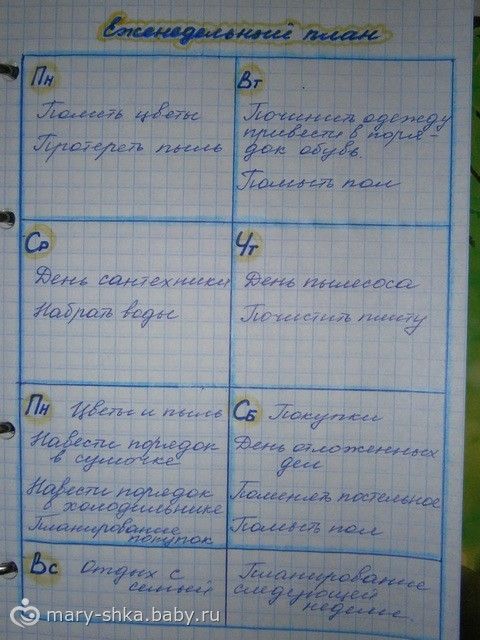 Еженедельный план
Пн
Полить цветы
Протереть пыль
Вт
Починить одежду
привести в поря-
док обувь.
Помыть пол
Ср
День сантехники
Набрать воды
Чт
День пылесоса
Почистить плиту
Пн Цветы и пыль
Навести порядок
в сумочке
Навести порядок
в холодильнике
Планирование
покупок
Сб Покупки
День отложенных
дел
Поменять постельное
Помыть пол
Вс Отдых с
семьей
Планирование
следующей
недели.
mary-shka.baby.ru